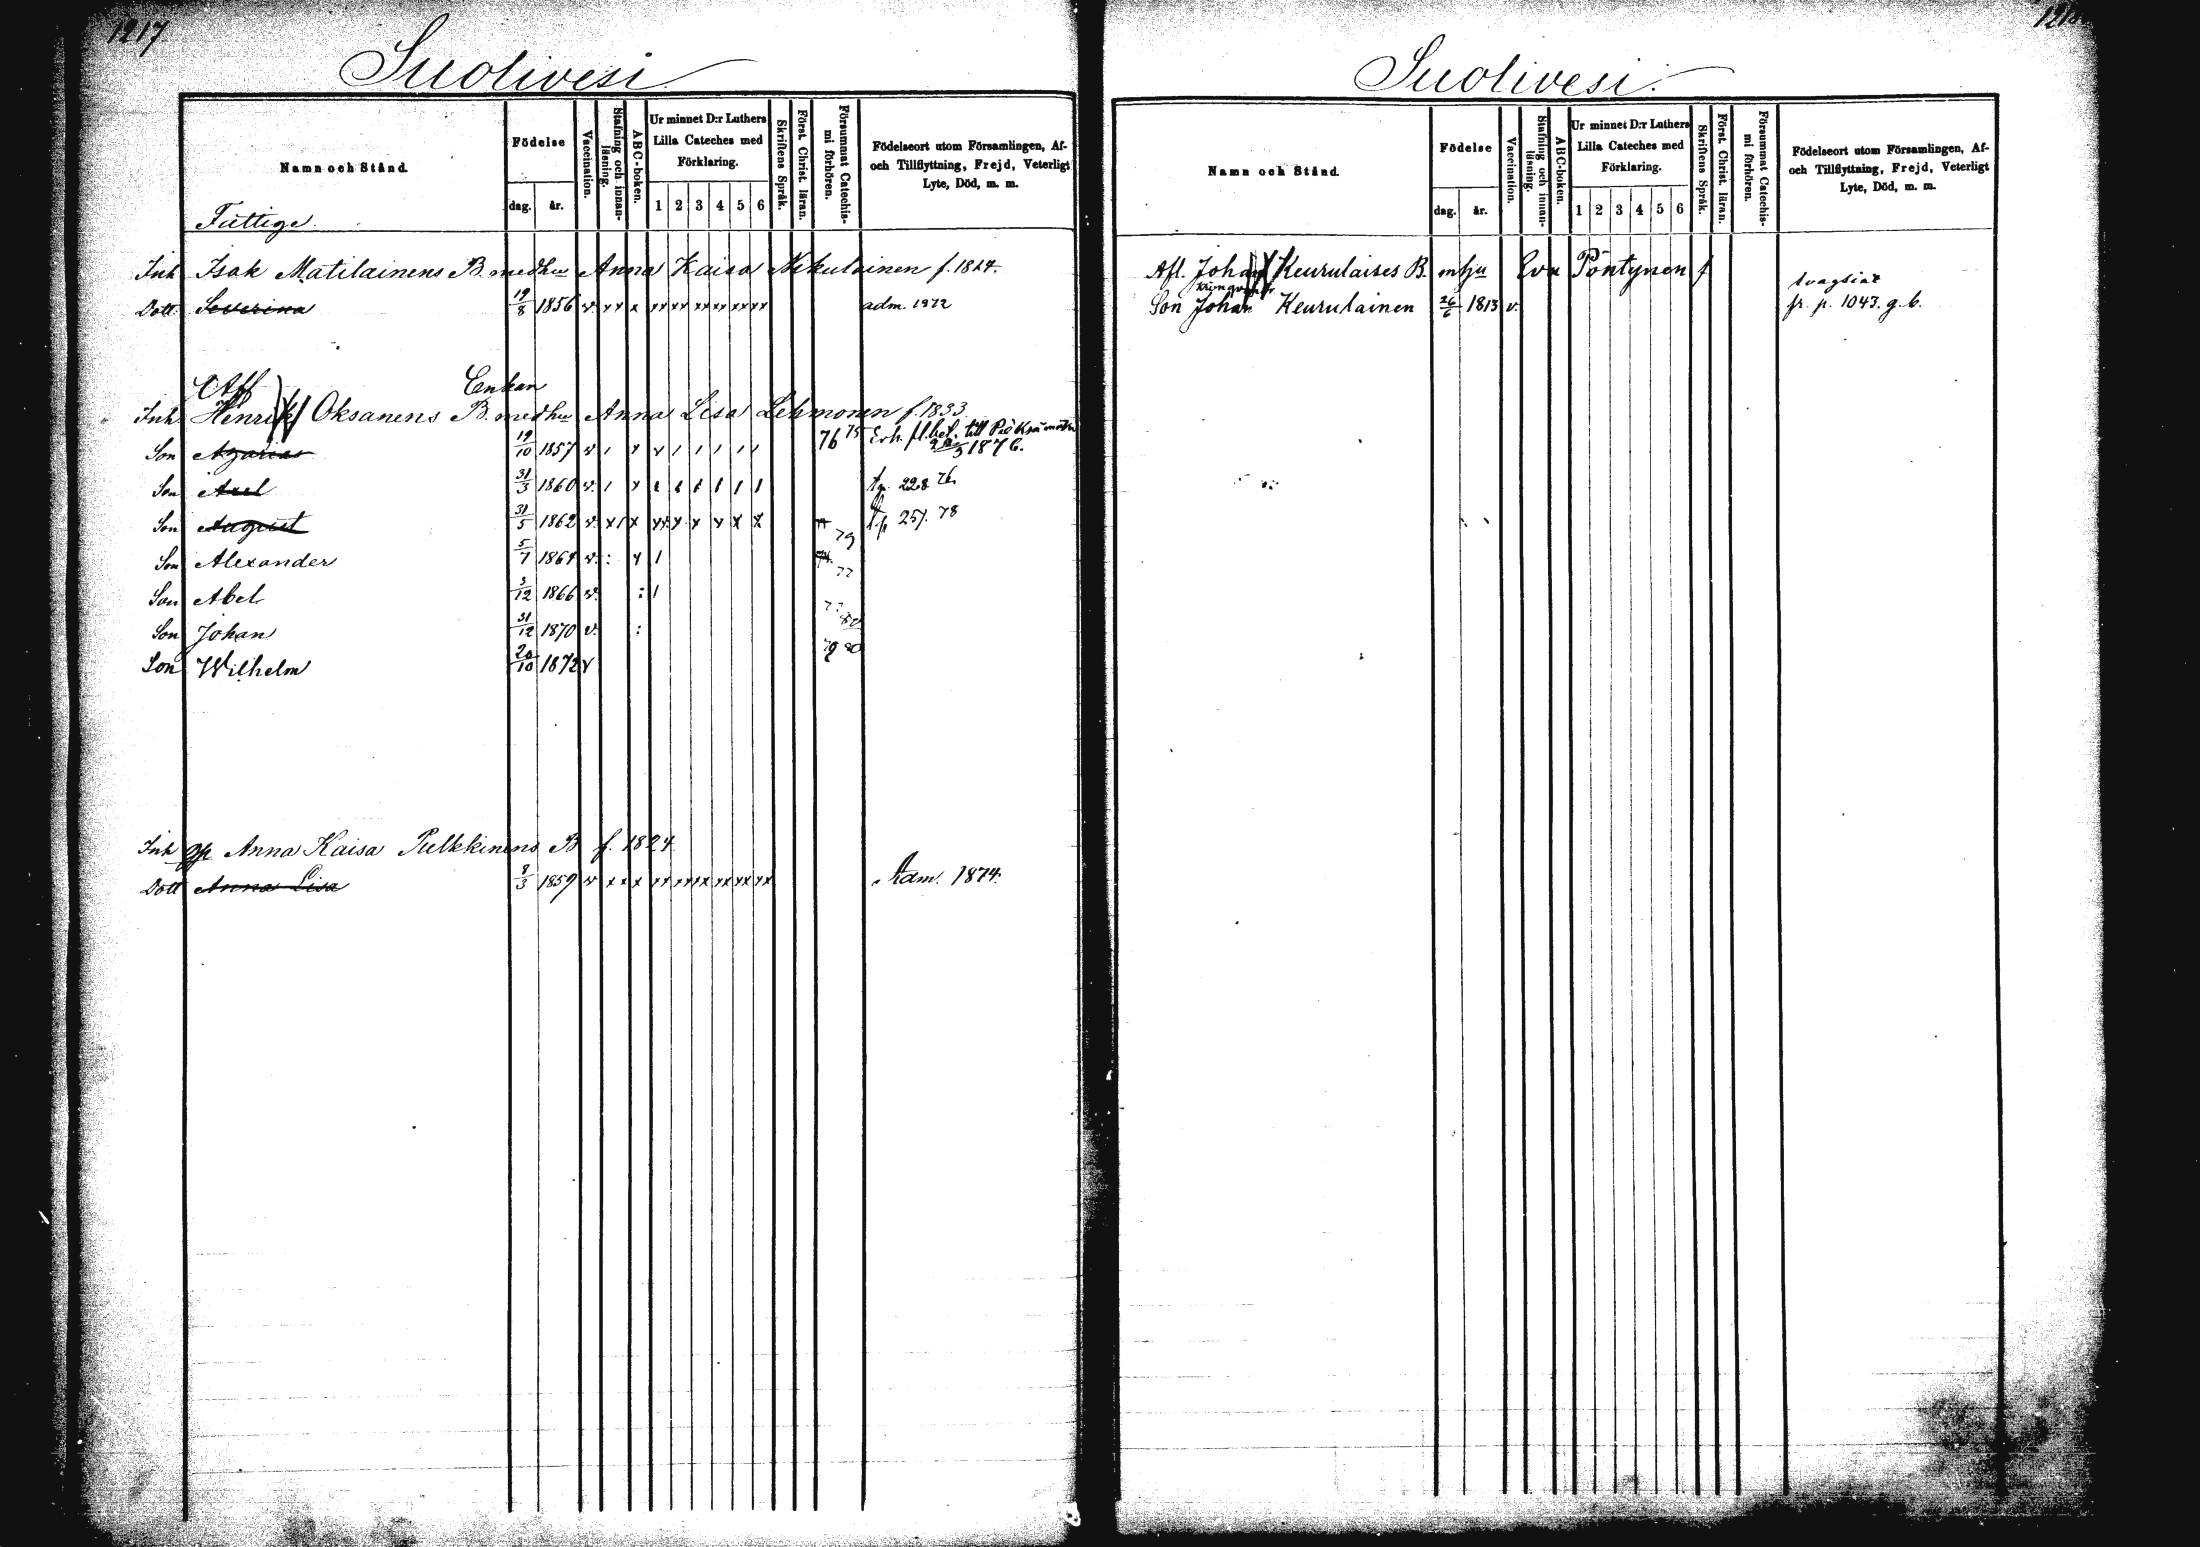 1217
Suolivesi
Namn och Stånd.
Födelse
dag. år.
Vaccination.
Stafning och innanläsning.
ABC-boken.
Ur minnet D:r Luthers Lilla Cateches med Förklaring.
1 2 3 4 5 6
Skriftens Språk.
Först. Christ. läran.
Försummat Catechismi förhören.
Födelseort utom Församlingen, Af- och Tillflyttning, Frejd, Veterligt Lyte, Död, m. m.
Fattige.
Inh Isak Matilainens B. med hu Anna Kaisa Nikulainen f. 1824.
Dott Severina 19/8 1856 v. xx x xx xx xx xx xx xx adm. 1872
Afl Enkan
Inh Henrik Oksanens B. med hu Anna Lisa Lehmonen f. 1833
Son Azarias 19/10 1857 v 76 75 Erh. fl. bet. till Pieksämäki 1876.
Son Axel 31/3 1860 v.
Son August 31/5 1862 v. 78
79
Son Alexander 5/7 1864 v.
77
Son Abel 3/12 1866 v.
Son Johan 31/12 1870 v. :
79 80
Son Wilhelm 20/10 1872 v
Inh Anna Kaisa Pulkkinens B f. 1824
Dott Anna Lisa 8/3 1859 v x x x xx xx xx xx xx xx Adm. 1874.
Suolivesi.
Namn och Stånd.
Födelse
dag. år.
Vaccination.
Stafning och innanläsning.
ABC-boken.
Ur minnet D:r Luthers Lilla Cateches med Förklaring.
1 2 3 4 5 6
Skriftens Språk.
Först. Christ. läran.
Försummat Catechismi förhören.
Födelseort utom Församlingen, Af- och Tillflyttning, Frejd, Veterligt Lyte, Död, m. m.
Afl. Johan Keurulaises B. m hu Eva Pöntynen f
Son Johan Keurulainen 26/6 1813 v. fr. p. 1043. g. b.